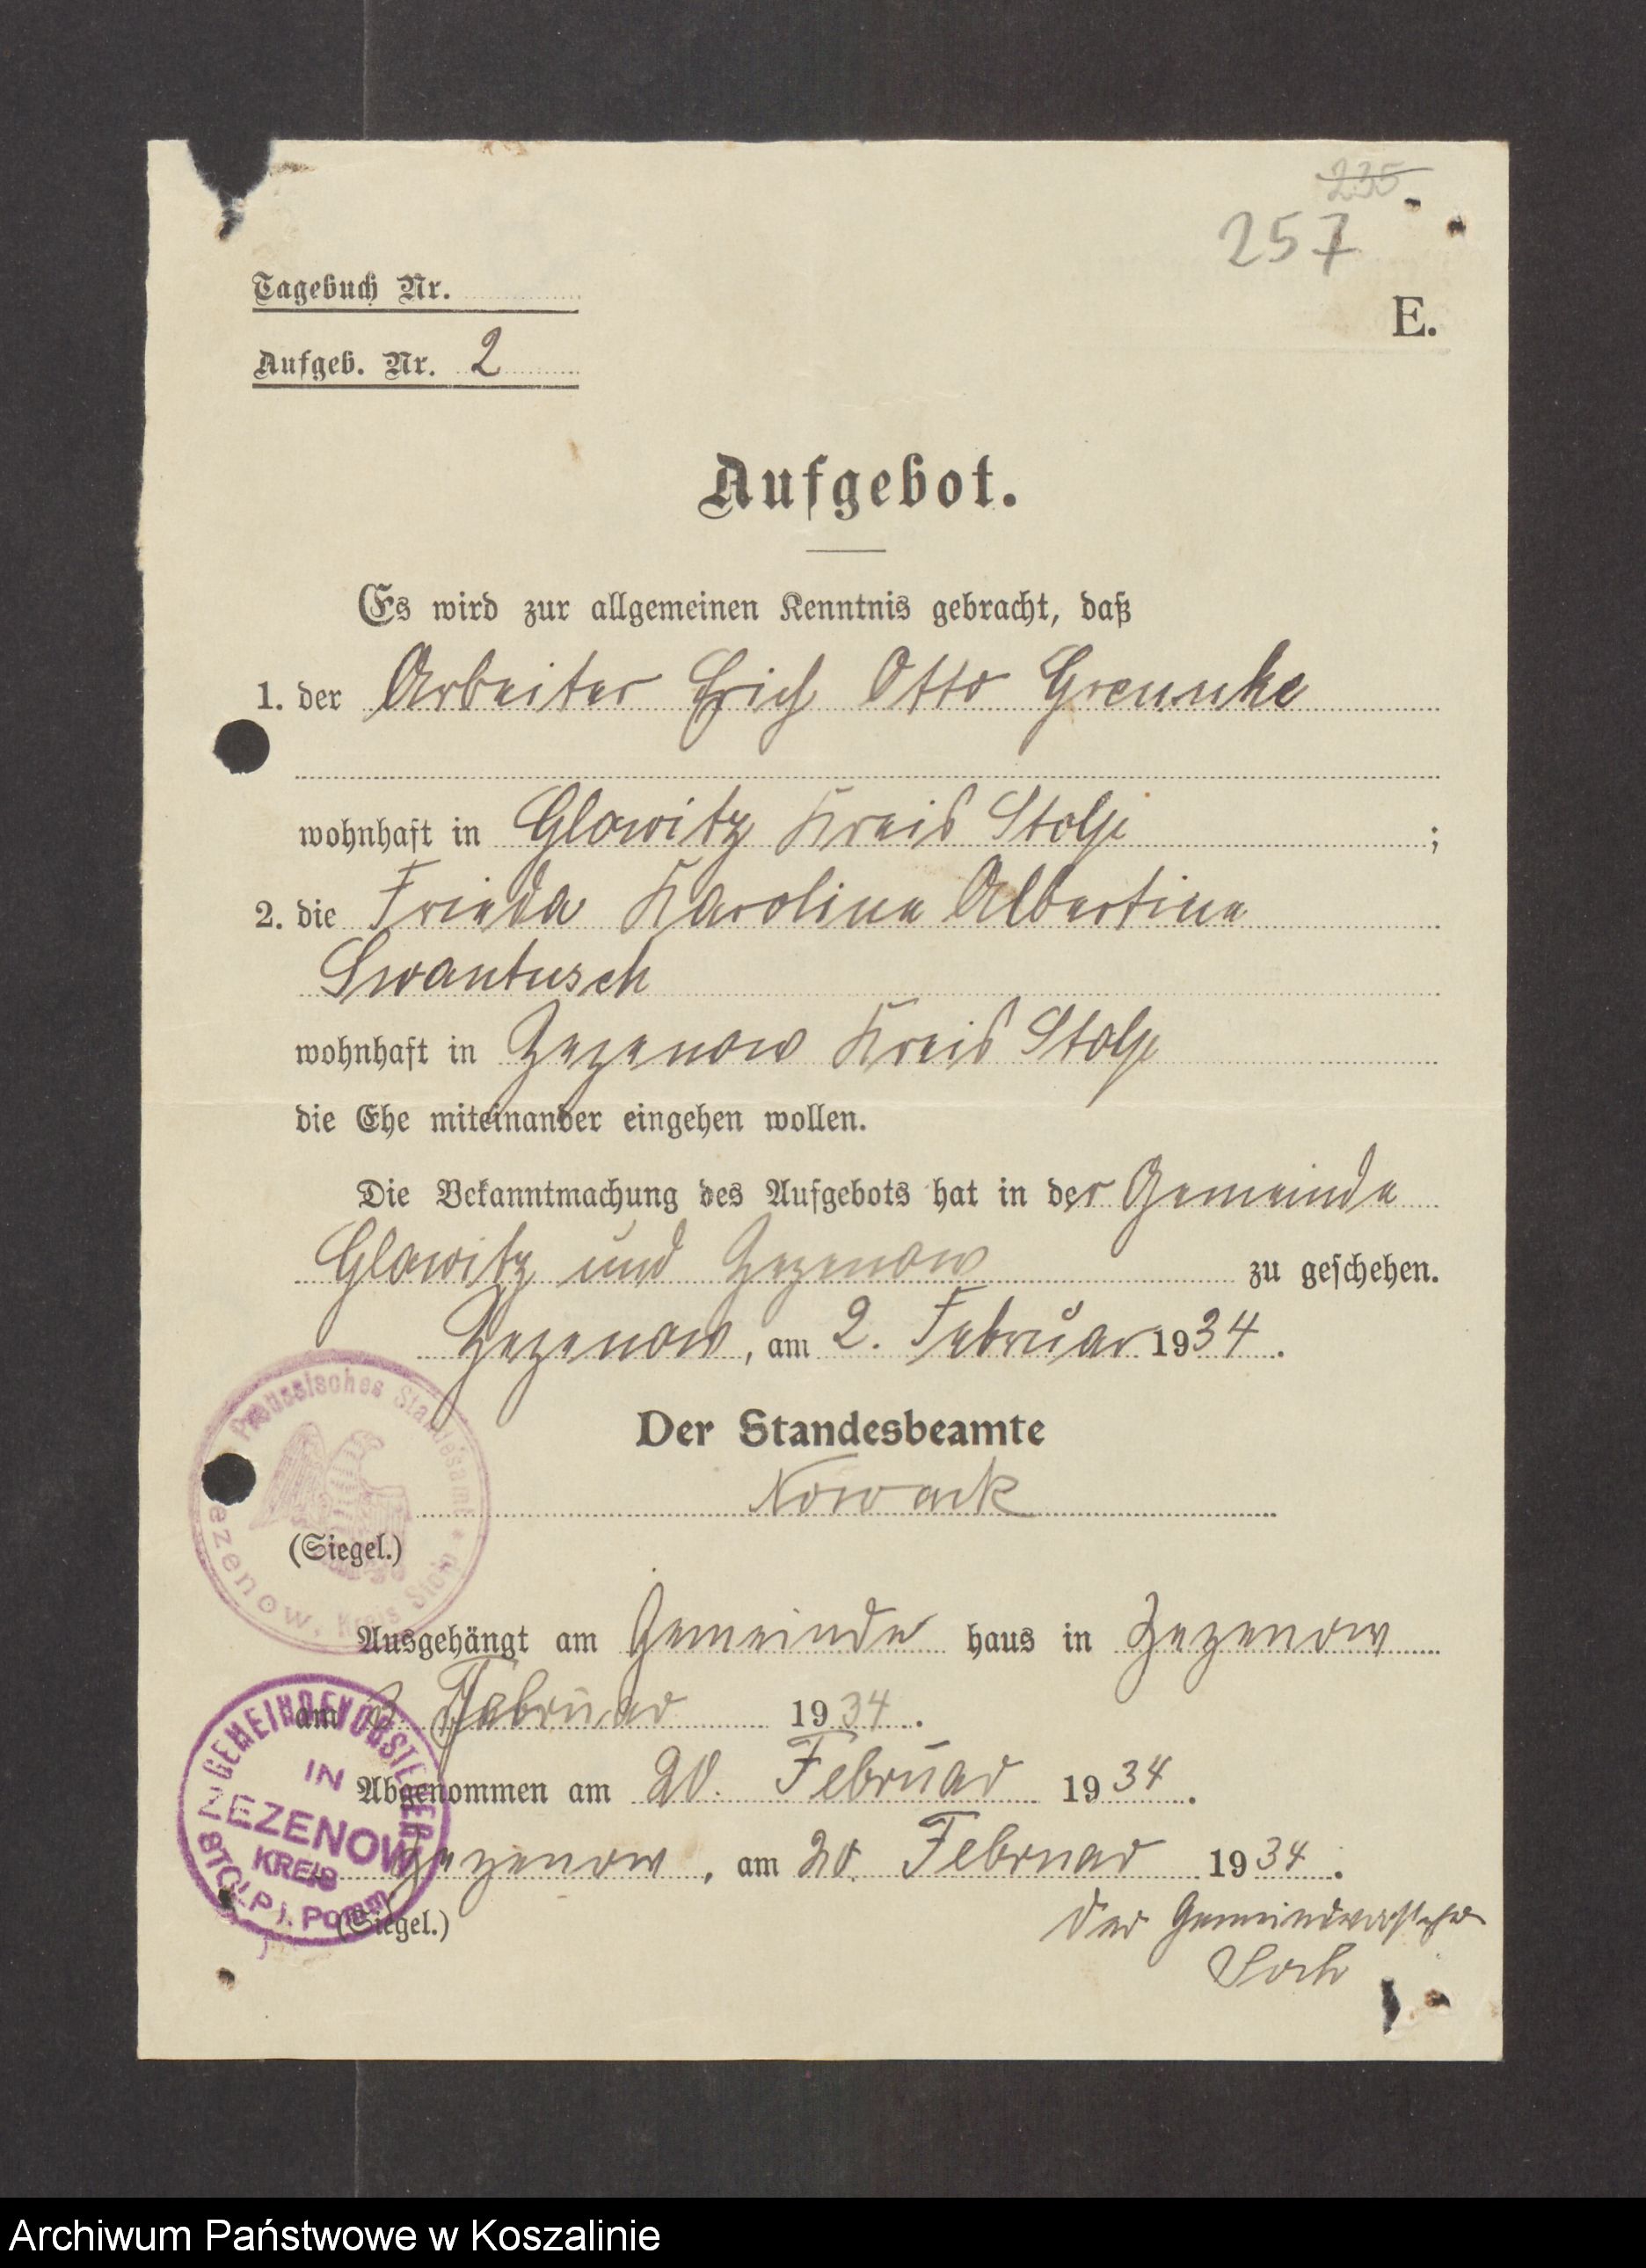 235
257
Tagebuch Nr.
E.
Aufgeb. Nr. 2
Aufgebot.
Es wird zur allgemeinen Kenntnis gebracht, daß
1. der Arbeiter Erich Otto Greunke
wohnhaft in Glowitz Kreis Stolp ;
2. die Frieda Karoline Albertine
Swantusch
wohnhaft in Zezenow Kreis Stolp
die Ehe miteinander eingehen wollen.
Die Bekanntmachung des Aufgebots hat in der Gemeinde
Glowitz und Zezenow zu geschehen.
Zezenow, am 2. Februar 1934.
Preussisches Standesamt * Zezenow, Kreis Stolp
Der Standesbeamte
Nowack
(Siegel.)
Ausgehängt am Gemeinde haus in Zezenow
am Februar 1934.
Abgenommen am 20. Februar 1934.
Zezenow, am 20. Februar 1934.
GEMEINDEVORSTEHER
IN
ZEZENOW
KREIS
STOLP i. POM
(Siegel.)
Der Gemeindevorsteher
Archiwum Państwowe w Koszalinie